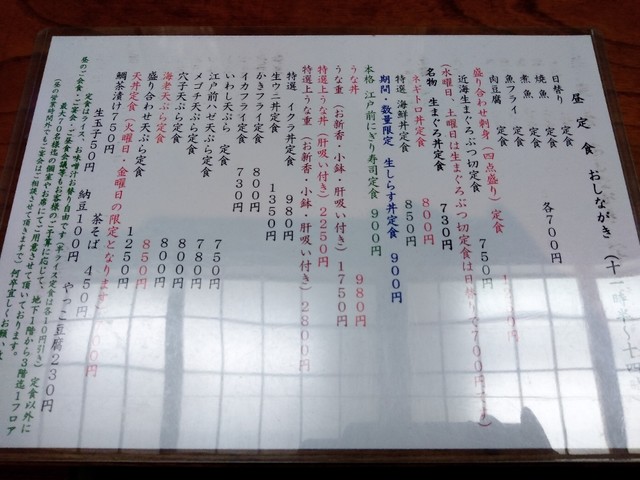 昼定食 おしながき (十一時半～十四
日替り 定食
焼魚 定食
煮魚 定食 各700円
魚フライ 定食
肉豆腐 定食
盛り合わせ刺身(四点盛り)定食
近海生まぐろぶつ切定食 750円
(水曜日、土曜日は生まぐろぶつ切定食は日替りで700円
名物 生まぐろ丼定食 730円
ネギトロ丼定食 800円
特選 海鮮丼定食 850円
期間・数量限定 生しらす丼定食 900円
本格 江戸前にぎり寿司定食 900円
うな丼 980円
うな重(お新香・小鉢・肝吸い付き)1750円
特選上うな丼(肝吸い付き)2250円
特選上うな重(お新香・小鉢・肝吸い付き)2800円
特選 イクラ丼定食 980円
生ウニ丼定食 1350円
かきフライ定食 800円
イカフライ定食 730円
いわし天ぷら 定食 750円
江戸前ハゼ天ぷら定食 780円
メゴチ天ぷら定食 700円
穴子天ぷら定食 800円
海老天ぷら定食 850円
盛り合わせ天ぷら定食 1250円
天丼定食(火曜日・金曜日の限定となります)
鯛茶漬け750円 茶そば 450円
生玉子50円 納豆100円 やっこ豆腐230円
定食はライス、お味噌汁お替り自由です(半ライス定食は各10円引き) 定食以外に
昼のご会食・ご宴会・ご昼食会議等もお客様のご予算に応じて、地下1階から3階迄1フロア
最大70名様迄の個室やお席にてご用意させて頂いております。
(昼の営業時間外でもご宴会はご相談させて頂きますので)何卒宜しくお願